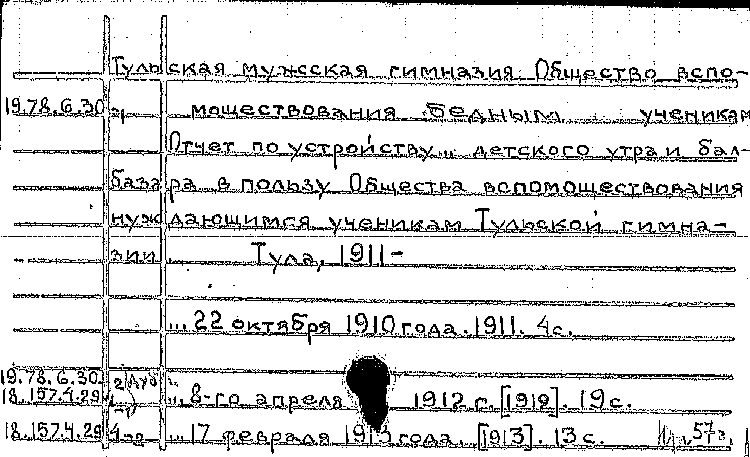 Тульская мужсская гимназия. Общество вспо-
19.78.6.30 моществования бедным ученикам
Отчет по устройству... детского утра и бал-
база́ра в пользу Общества вспомоществования
нуждающимся ученикам Тульской гимна-
зии. Тула, 1911-
... 22 октября 1910 года. 1911. 4с.
19.78.6.30
18.157.4.29 ... 8-го апреля 1912 г. [1912]. 19с.
18.157.4.29 ... 17 февраля 1913 года. [1913]. 13с.